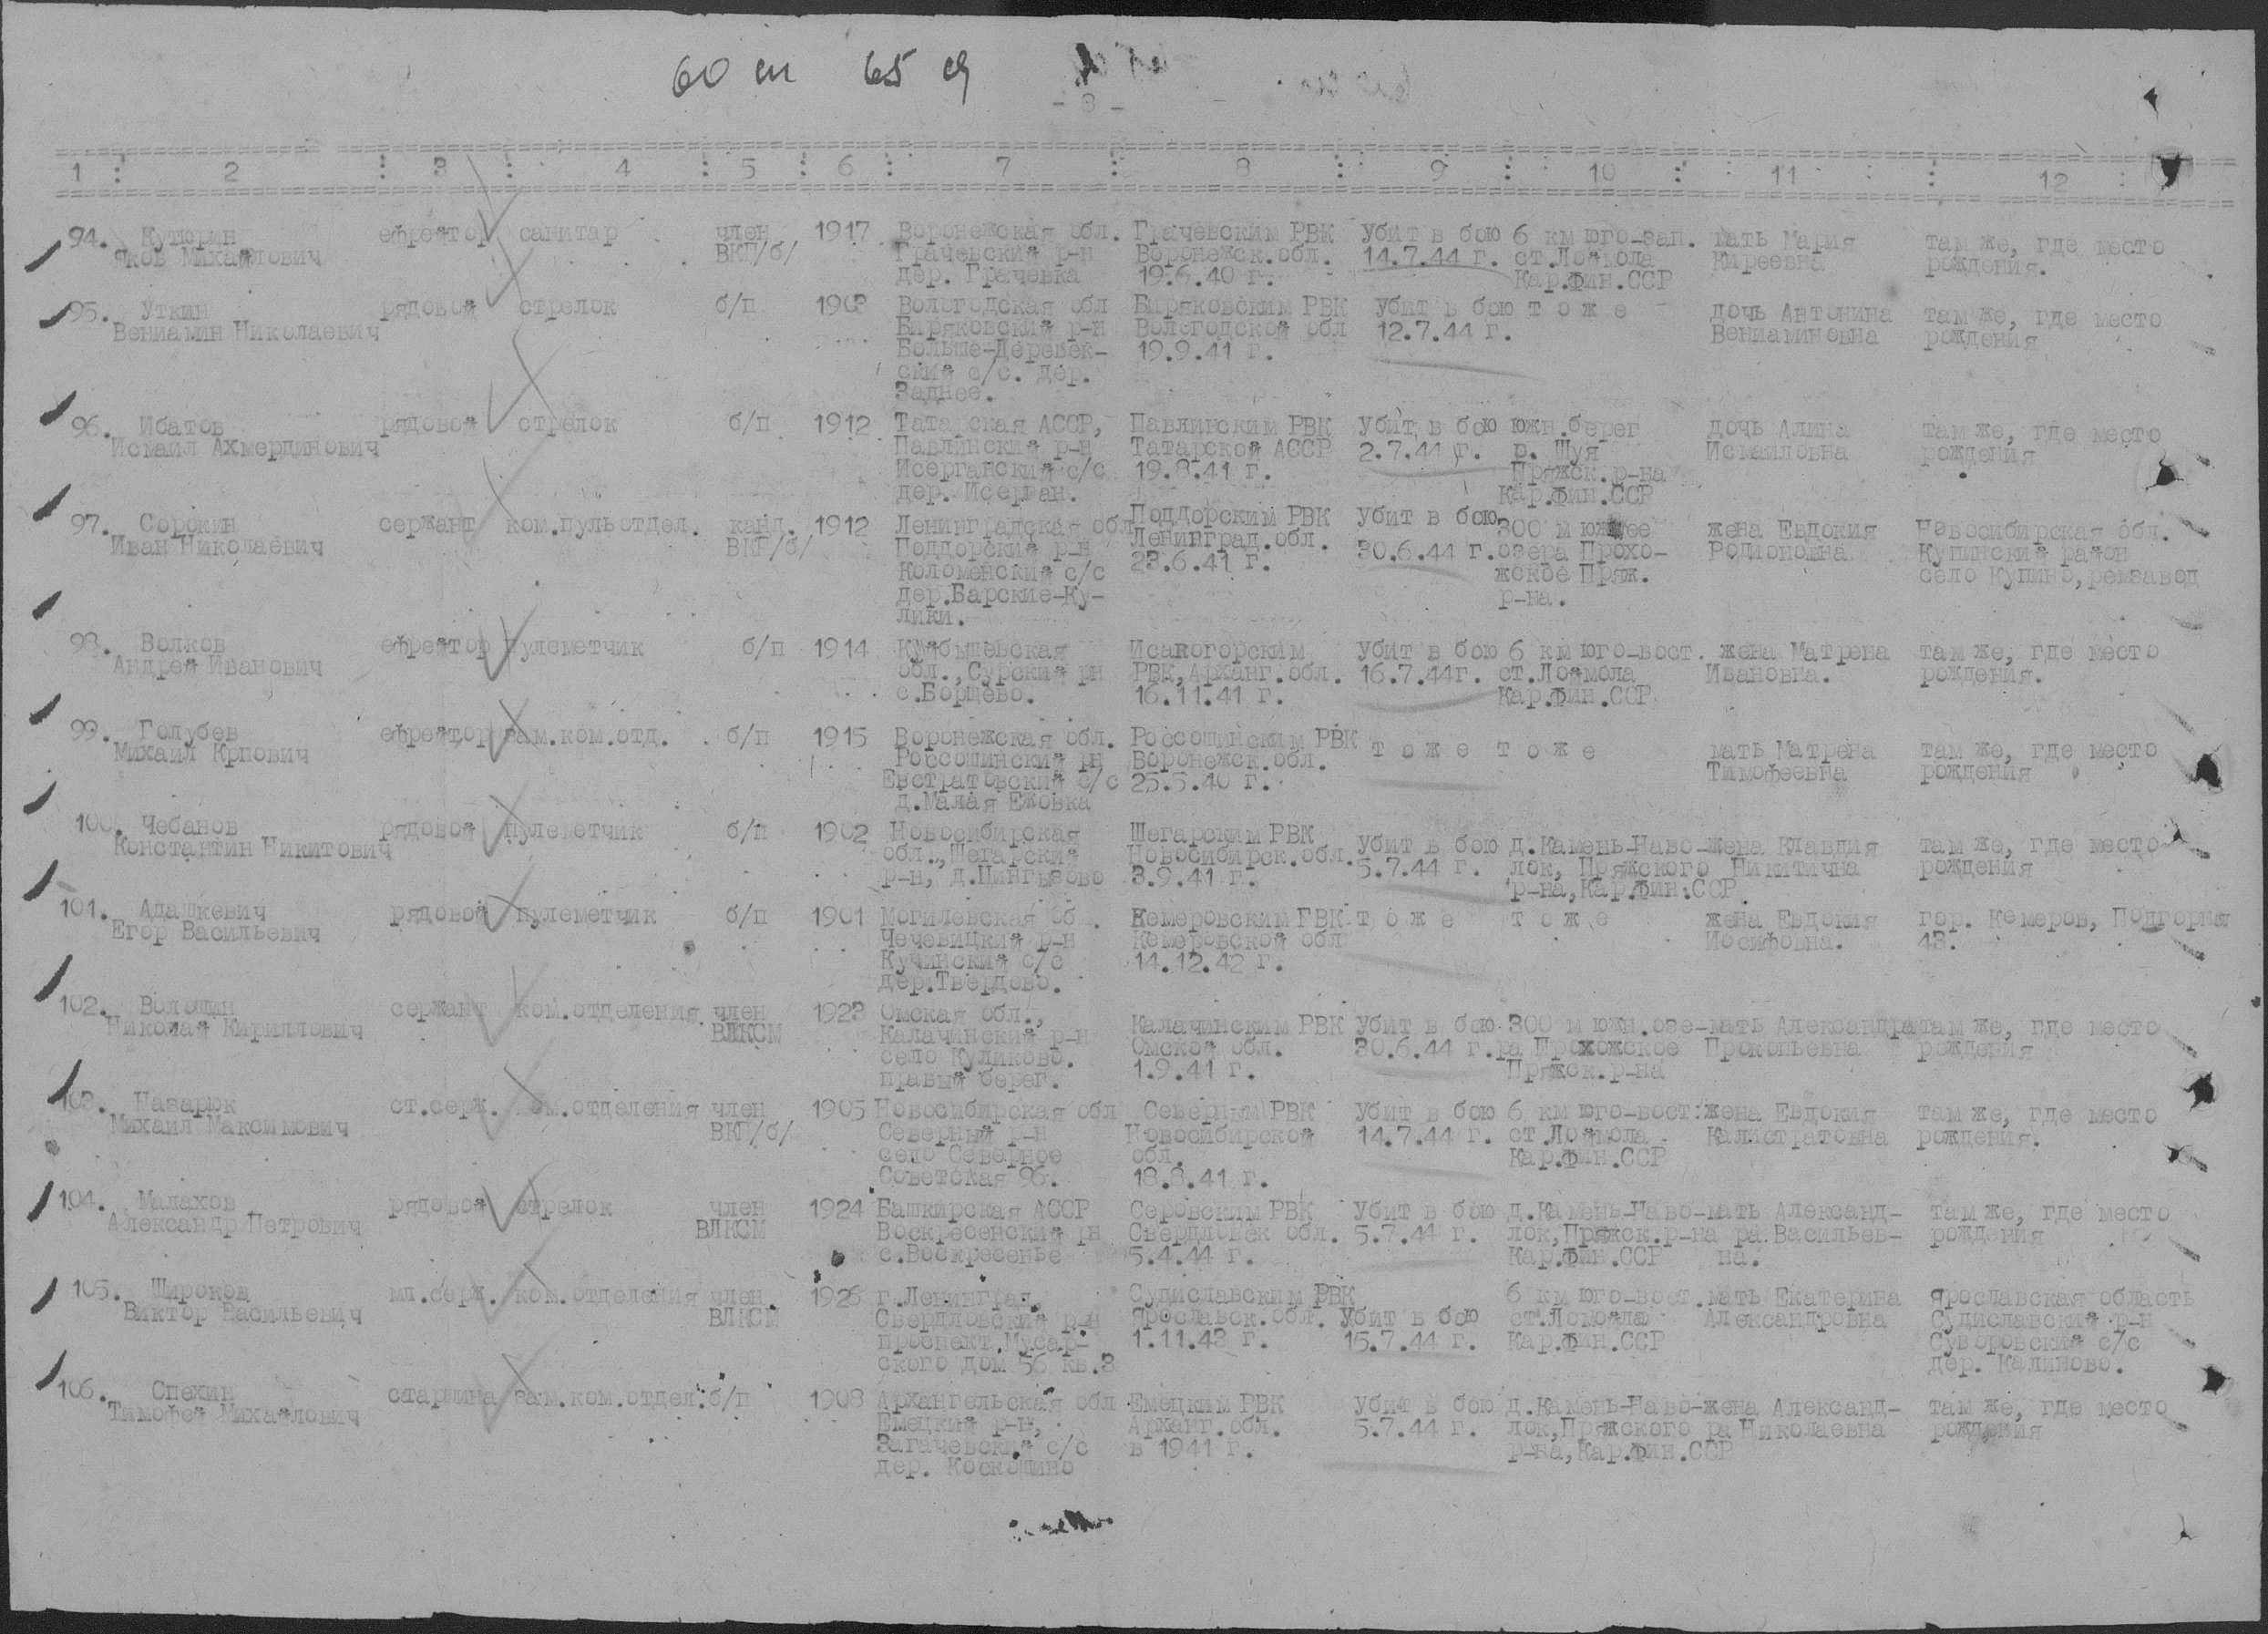 60 65
- 8 -
1 : 2 : 3 : 4 : 5 : 6 : 7 : 8 : 9 : 10 : 11 : 12 :
94. Кутюрин ефрейтор санитар член 1917 Воронежская обл. Грачевским РВК убит в бою 6 км юго-зап. мать Мария там же, где место
Яков Михайлович ВКП/б/ Грачевский р-н Воронежск.обл. 14.7.44 г. ст.Лоймола Киреевна рождения.
дер. Грачевка 19.6.40 г. Кар.фин.ССР
95. Уткин рядовой стрелок б/п 1903 Вологодская обл Биряковским РВК убит в бою т о ж е дочь Антонина там же, где место
Вениамин Николаевич Биряковский р-н Вологодской обл 12.7.44 г. Вениаминовна рождения
Больше-Деревек- 19.9.41 г.
ский с/с. дер.
Заднее.
96. Ибатов рядовой стрелок б/п 1912 Татарская АССР, Павлинским РВК убит в бою южн.берег дочь Алина там же, где место
Исмаил Ахмердинович Павлинский р-н Татарской АССР 2.7.44 г. о. Шуя Исмаиловна рождения
Исергански й с/с 19.8.41 г. Пряжск.р-на
дер. Исерган. Кар.фин.ССР
97. Сорокин сержант ком.пульотдел. канд. 1912 Ленинградская обл Поддорским РВК убит в бою 300 м южнее жена Евдокия Новосибирская обл.
Иван Николаевич ВКП/б/ Поддорский р-н Ленинград.обл. 30.6.44 г. озера Прохо- Родионовна Купинский район
Коломенский с/с 23.6.41 г. жское Пряж. село Купино, ремзавод
дер.Барские-Ку- р-на.
лики.
98. Волков ефрейтор пулеметчик б/п 1914 Куйбышевская Исакогорским убит в бою 6 км юго-вост. жена Матрена там же, где место
Андрей Иванович обл.,Сурский рн РВК,Арханг.обл. 16.7.44г. ст.Лоймола Ивановна. рождения.
с.Борщево. 16.11.41 г. Кар.фин.ССР
99. Голубев ефрейтор зам.ком.отд. б/п 1915 Воронежская обл. Россошинским РВК т о ж е т о ж е мать Матрена там же, где место
Михаил Крпович Россошинский рн Воронежск.обл. Тимофеевна рождения
Евстратовский с/с 25.5.40 г.
д.Малая Ежовка
100. Чебанов рядовой пулеметчик б/п 1902 Новосибирская Шегарским РВК убит в бою д.Камень-Наво- жена Клавдия там же, где место
Константин Никитович обл.,Шегарский Новосибирск.обл. 5.7.44 г. лок, Пряжского Никитична рождения
р-н, д.Цингызово 3.9.41 г. р-на,Кар.фин.ССР.
101. Адашкевич рядовой пулеметчик б/п 1901 Могилевская об. Кемеровским ГВК т о ж е т о ж е жена Евдокия гор. Кемеров, Подгорная
Егор Васильевич Чечевицкий р-н Кемеровской обл Иосифовна. 43.
Кучинский с/с 14.12.42 г.
дер.Твердово.
102. Волошин сержант ком.отделения член 1923 Омская обл., Калачинским РВК убит в бою 300 м южн.озе- мать Александра там же, где место
Николай Кириллович ВЛКСМ Калачинский р-н Омской обл. 30.6.44 г. ра Прохожское Прокопьевна рождения
село Куликово. 1.9.41 г. Пряжск.р-на
правый берег.
103. Назарюк ст.серж. ком.отделения член 1905 Новосибирская обл Северным РВК убит в бою 6 км юго-вост: жена Евдокия там же, где место
Михаил Максимович ВКП/б/ Северный р-н Новосибирской 14.7.44 г. ст.Лоймола Калистратовна рождения.
село Северное обл. Кар.фин.ССР
Советская 96. 18.8.41 г.
104. Малахов рядовой стрелок член 1924 Башкирская АССР Серовским РВК убит в бою д.Камень-Наво- мать Александ- там же, где место
Александр Петрович ВЛКСМ Воскресенский рн Свердловск обл. 5.7.44 г. лок,Пряжск.р-на ра Васильев- рождения
с.Воскресенье 5.4.44 г. Кар.фин.ССР на.
105. Широков мл.серж. ком.отделения член 1926 г.Ленинград, Судиславским РВК 6 км юго-вост. мать Екатерина Ярославская область
Виктор Васильевич ВЛКСМ Свердловский р-н Ярославск.обл. убит в бою ст.Ломойла Александровна Судиславский р-н
проспект Мусар- 1.11.43 г. 15.7.44 г. Кар.фин.ССР Суворовский с/с
ского дом 56 кв.3 дер. Калиново.
106. Спехин старшина зам.ком.отдел. б/п 1908 Архангельская обл Емецким РВК убит в бою д.Камень-Наво- жена Александ- там же, где место
Тимофей Михайлович Емецкий р-н, Арханг.обл. 5.7.44 г. лок,Пряжского ра Николаевна рождения
Загачевский с/с в 1941 г. р-на,Кар.фин.ССР
дер. Коскошино